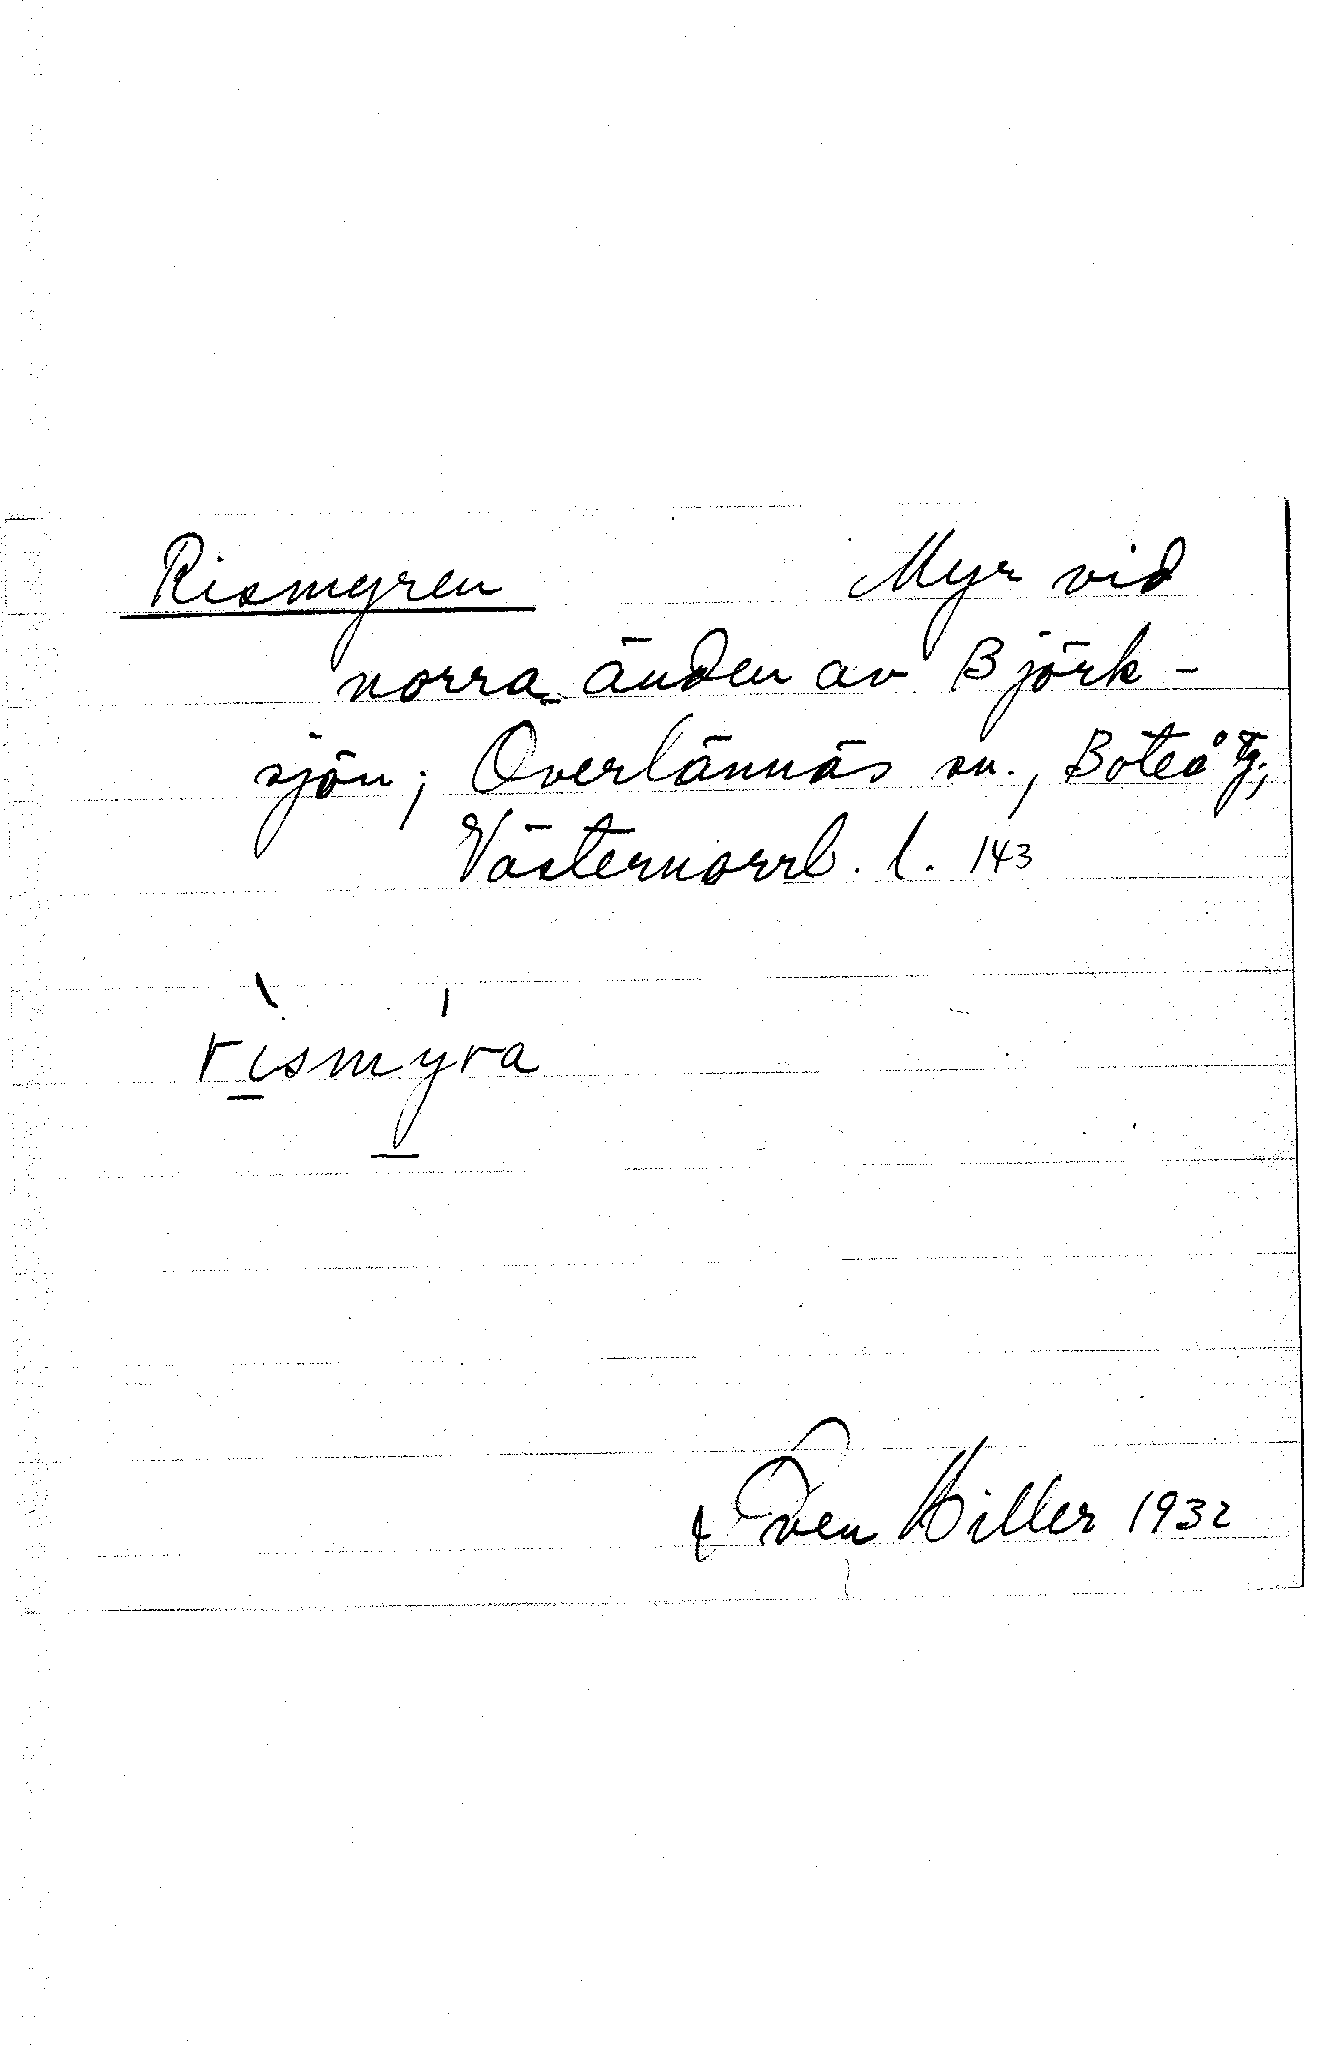 Rismyren Myr vid
norra änden av Björk-
sjön; Överlännäs sn., Boteå tg.,
Västernorrl. l. 143
rismyra
Sven Hiller 1932